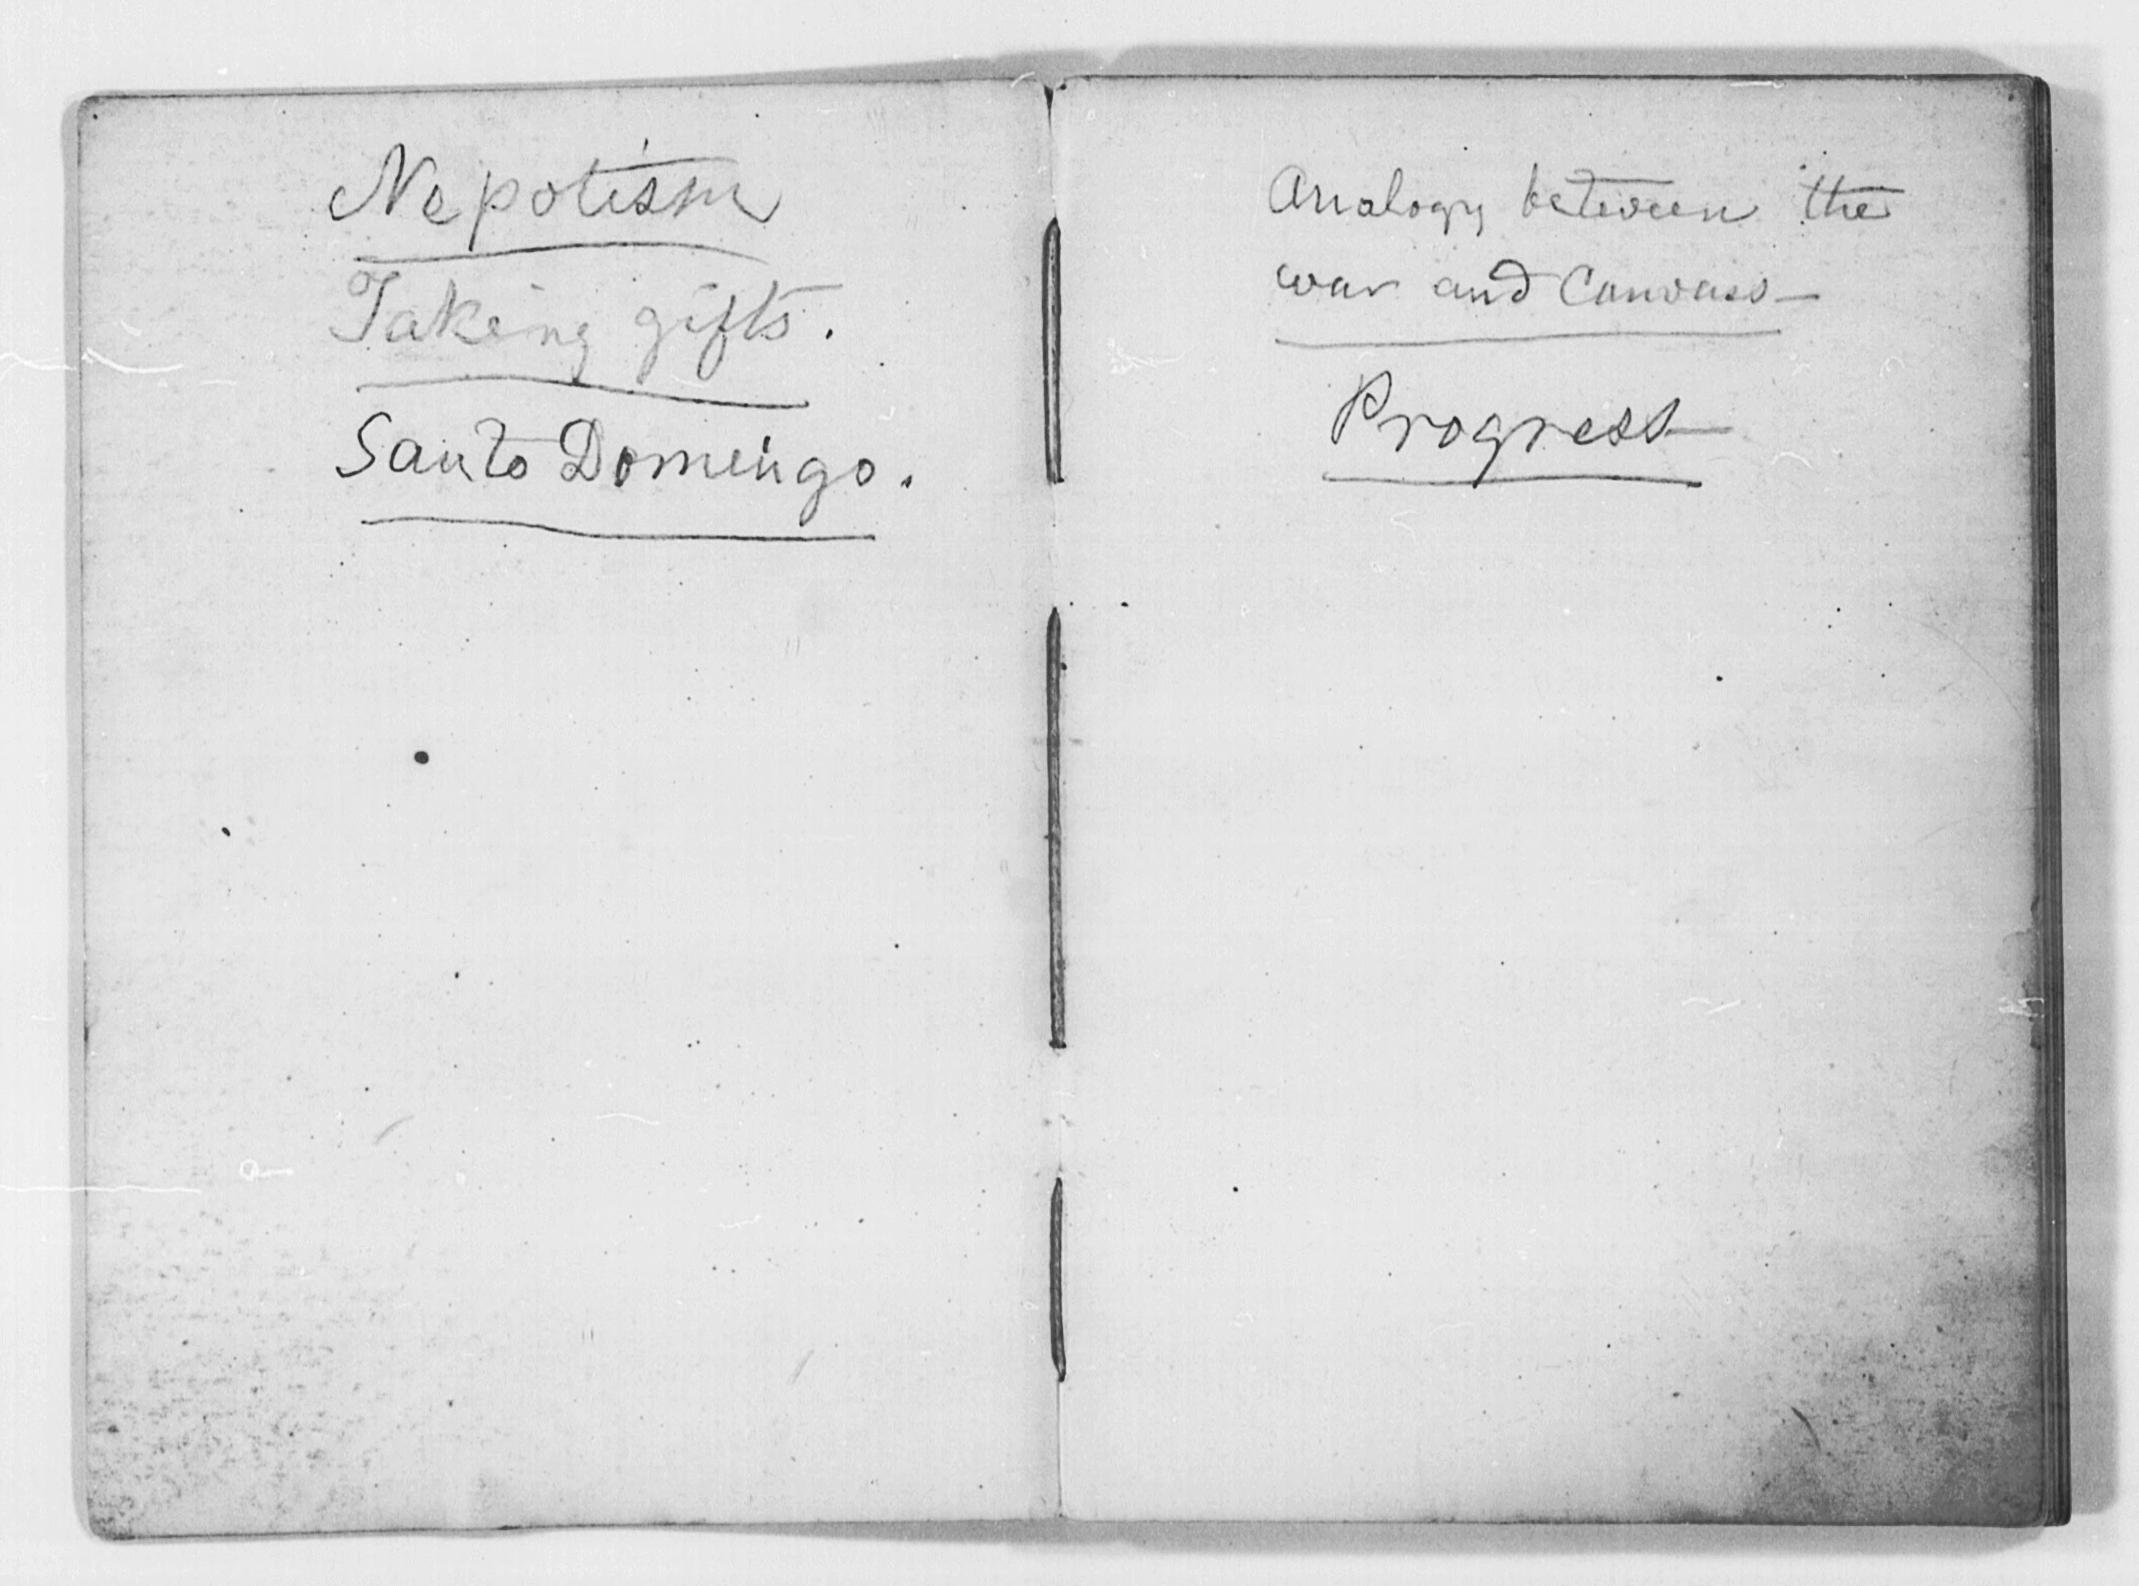 Nepotism
Taking gifts.
Santo Domingo.
Analogy between the
war and Canvass—
Progress—